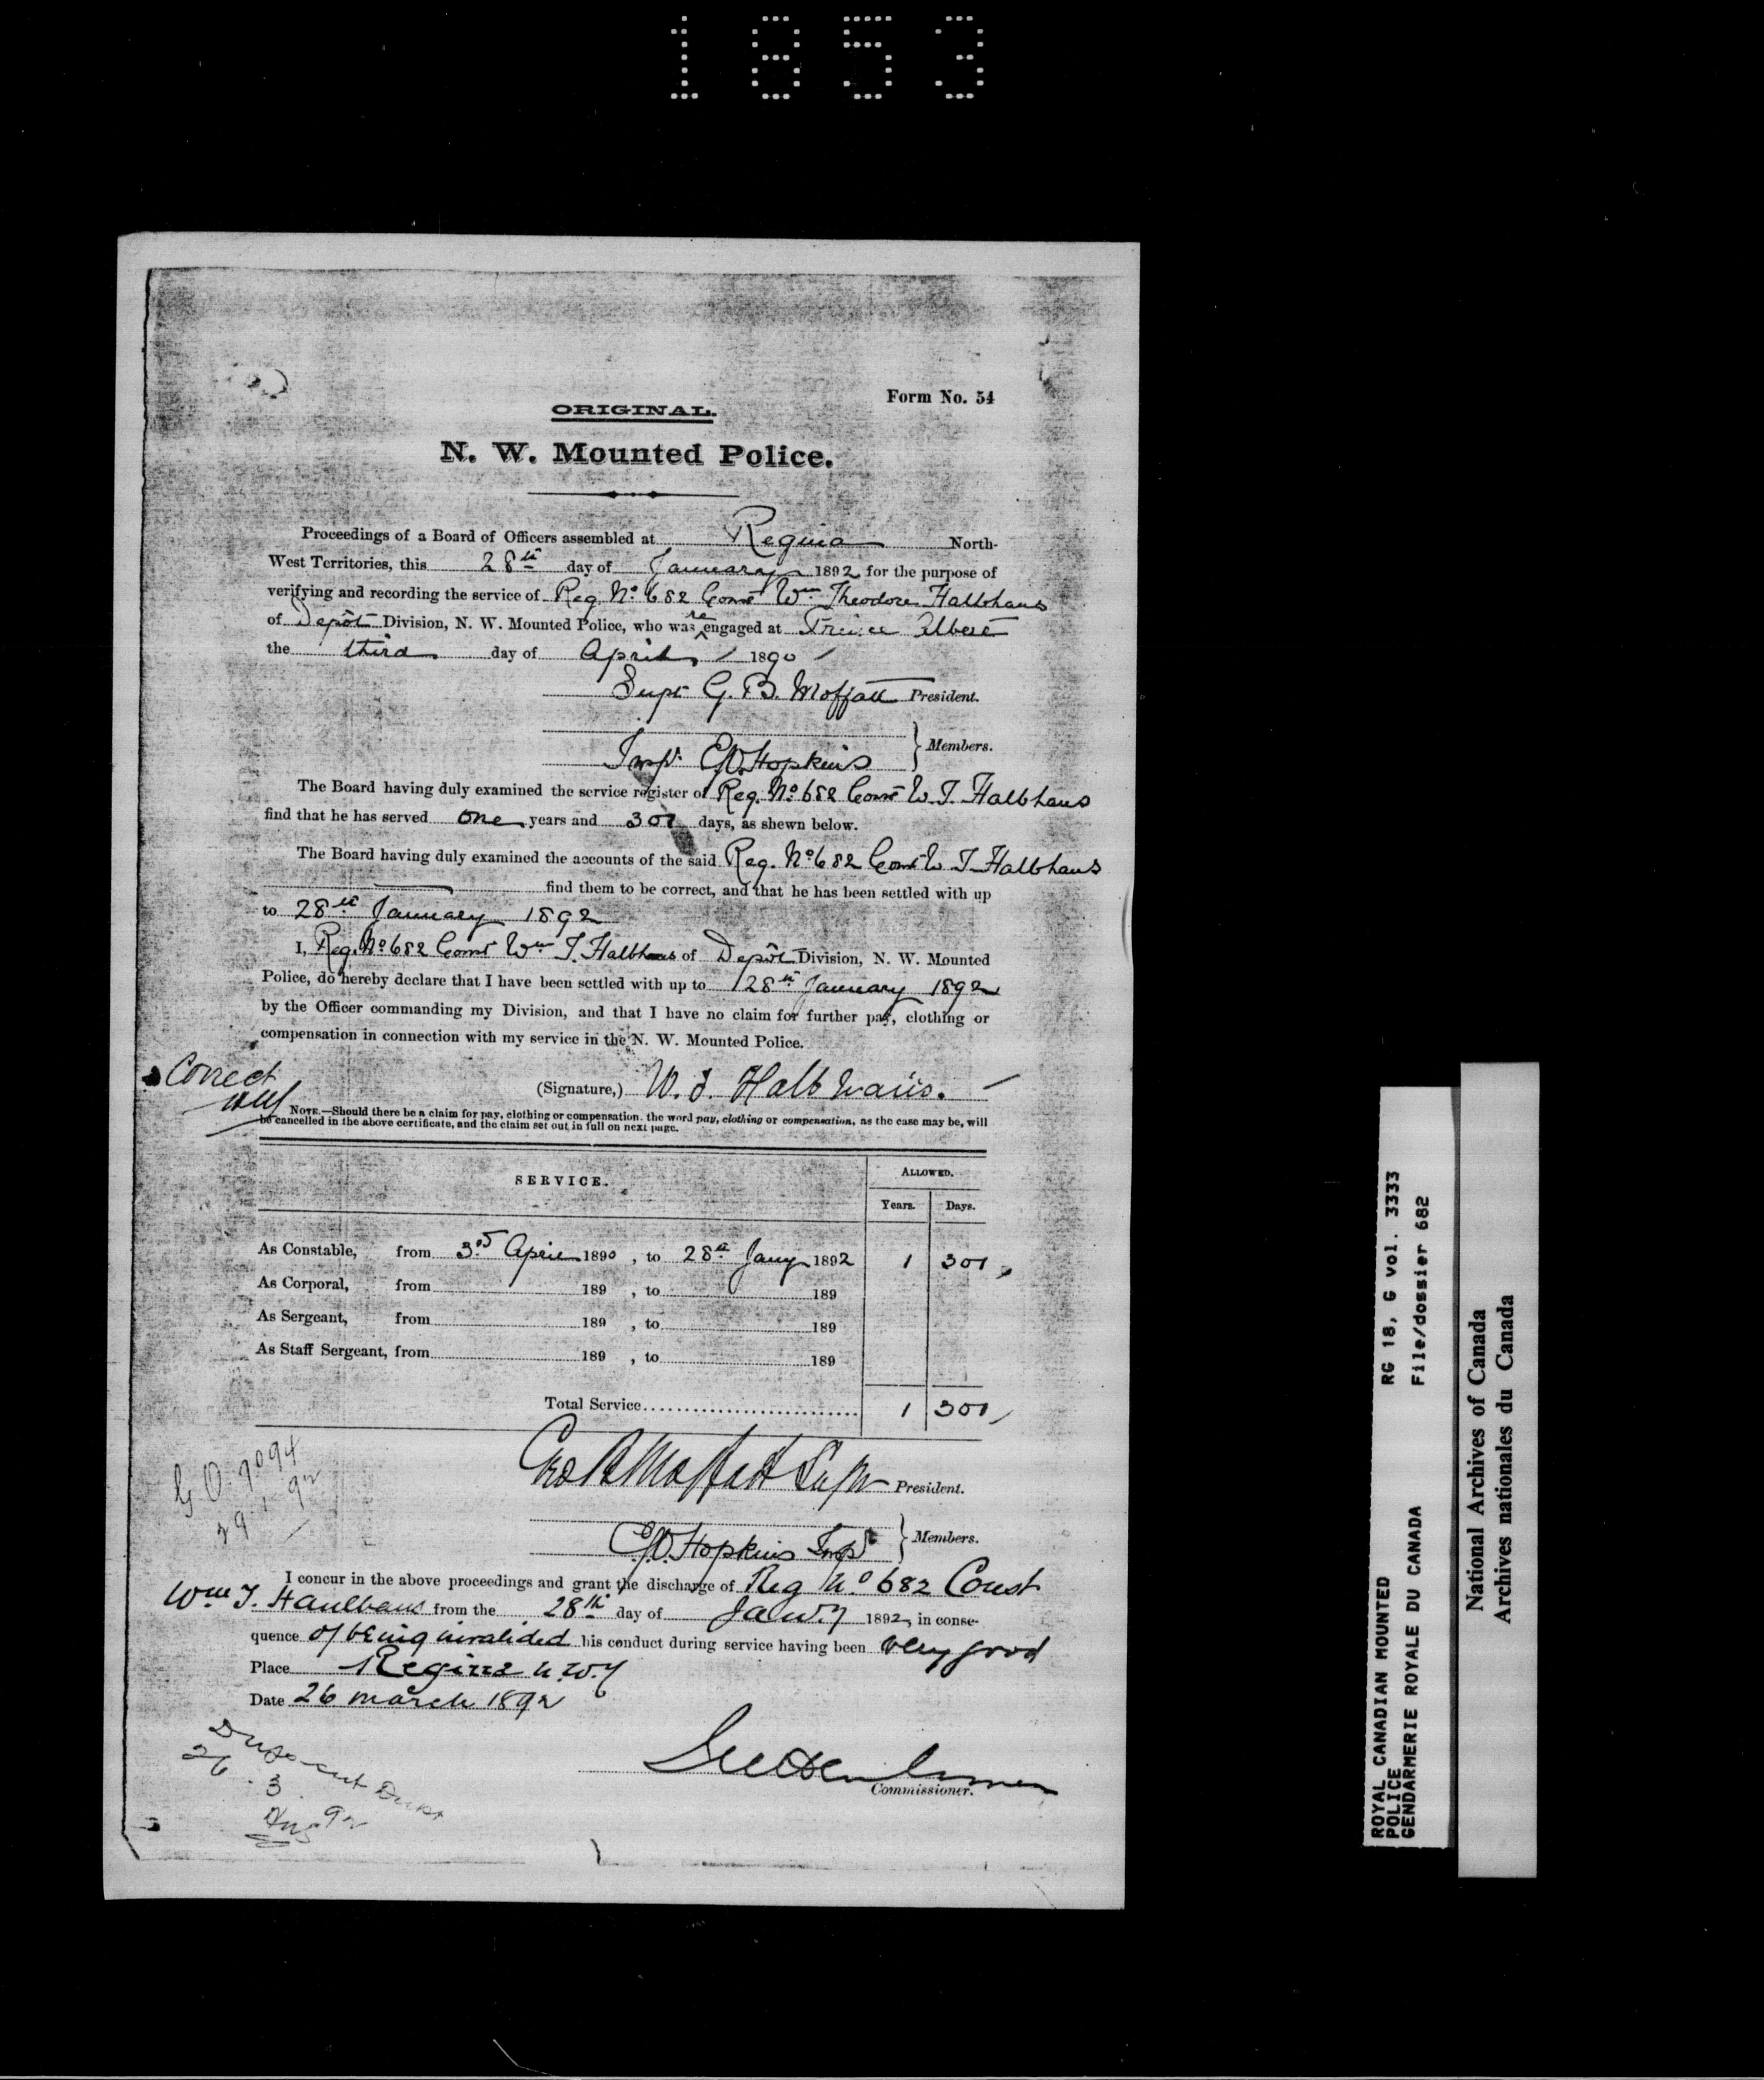 1853
Form No. 54
ORIGINAL.
N. W. Mounted Police.
Proceedings of a Board of Officers assembled at Regina North-
West Territories, this 28th day of January 1892 for the purpose of
verifying and recording the service of Reg. No. 682 Const Wm Theodore Halbhaus
of Depôt Division, N. W. Mounted Police, who was re engaged at Prince Albert
the third day of April 1890
Supt G. B. Moffatt President.
Members.
Insp. Hopkins
The Board having duly examined the service register of Reg. No. 682 Const W. T. Halbhaus
find that he has served One years and 301 days, as shewn below.
The Board having duly examined the accounts of the said Reg. No 682 Const W T Halbhaus
find them to be correct, and that he has been settled with up
to 28th January 1892
I, Reg. No 682 Const Wm T. Halbhaus of Depôt Division, N. W. Mounted
Police, do hereby declare that I have been settled with up to 28th January 1892
by the Officer commanding my Division, and that I have no claim for further pay, clothing or
compensation in connection with my service in the N. W. Mounted Police.
Correct
(Signature,) W. T. Halbhaus.
NOTE.—Should there be a claim for pay, clothing or compensation. the word pay, clothing or compensation, as the case may be, will
be cancelled in the above certificate, and the claim set out in full on next page.
SERVICE.
ALLOWED.
Years. Days.
As Constable, from 3rd April 1890, to 28th Jany 1892 1 301
As Corporal, from 189 , to 189
As Sergeant, from 189 , to 189
As Staff Sergeant, from 189 , to 189
Total Service 1 301
G.O. 7094
29 1 92
Geo B Moffatt Supt President.
Hopkins Insp
Members.
I concur in the above proceedings and grant the discharge of Reg No 682 Const
Wm T. Haulbaus from the 28th day of Jany 1892, in conse-
quence of being invalided his conduct during service having been very good
Place Regina N.W.T
Date 26 March 1892
26.3.92
Commissioner.
ROYAL CANADIAN MOUNTED POLICE
GENDARMERIE ROYALE DU CANADA
RG 18, G vol. 3333
File/dossier 682
National Archives of Canada
Archives nationales du Canada